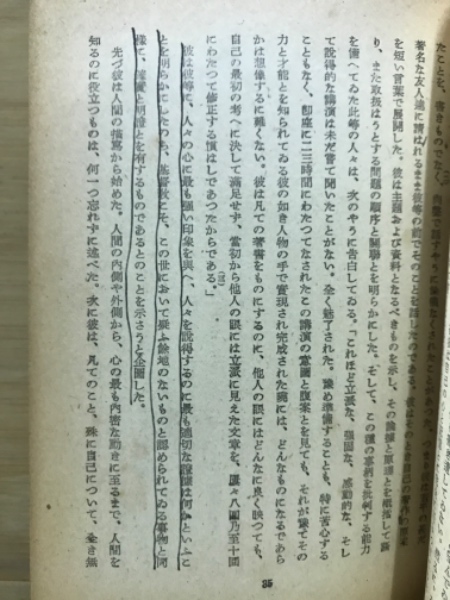 著名な友人達に請はれるまま彼等の前でそのことを話したのである。彼は
を短い言葉で展開した。彼は主題および資料となるべきものを示し、その
り、また取扱はうとする問題の順序と關聯とを明らかにした。そして、この種の事柄を批判する能力
を備へてゐた此等の人々は、次のやうに告白してゐる。「これほど立派な、强固な、感動的な、そし
て說得的な講演は未だ嘗て聞いたことがない。全く魅了された。豫め準備することも、特に苦心する
こともなく、卽座に二三時間にわたつてなされたこの講演の意圖と腹案とを見ても、それが嘗てその
力と才能とを知られてゐる彼の如き人物の手で實現され完成された曉には、どんなものになるであら
かは想像するに難くない。彼は凡ての著書をものにするのに、他人の眼にはどんなに良く映つても、
自己の最初の考へに決して滿足せず、當初から他人の眼には立派に見えた文章を、屢々八囘乃至十囘
にわたつて修正する慣はしであつたからである。」
彼は彼等に、人々の心に最も强い印象を與へ、人々を說得するのに最も適切な證據は何かといふこ
とを明らかにしたのち、基督敎こそ、この世において疑ふ餘地のないものと認められてゐる事物と同
樣に、確實と明證とを有するものであるとのことを示さうと企圖した。
先づ彼は人間の描寫から始めた。人間の內側や外側から、心の最も內密な動きに至るまで、人間を
知るのに役立つものは、何一つ忘れずに述べた。次に彼は、凡てのこと、殊に自己について、全き無
35